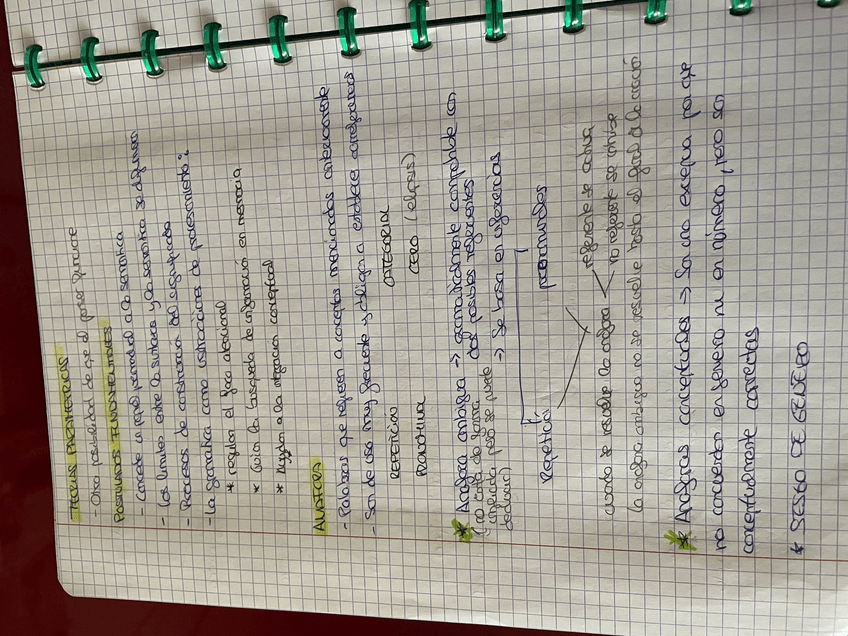 TEORIAS PARSIMÓNICAS
- Otra posibilidad de que el parser funcione
POSTULADOS FUNDAMENTALES
- Concede un papel primordial a la semántica
- Los límites entre la sintaxis y la semántica se difuminan
- Procesos de construcción del significado
- La gramática como instrucciones de procesamiento:
* regulan el foco atencional
* Guían la búsqueda de información en memoria
* Ayudan a la integración conceptual
ANÁFORA
- Palabras que refieren a conceptos mencionados anteriormente
- Son de uso muy frecuente y obligan a establecer correferencias
REPETICIÓN CATEGORIA
PRONOMINAL CERO (elipsis)
* Anáfora ambigua → gramaticalmente compatible con
(no está de forma dos posibles referentes
explícita pero se puede → Se basa en inferencias
deducir)
Repetición pronominales
cuando se resuelve la anáfora referente se activa
no referente se inhibe
la anáfora ambigua no se resuelve hasta el final de la oración
* Anáforas conceptuales → Son una excepción porque
no concuerdan en género ni en número, pero son
conceptualmente correctas
* SESGO DE GÉNERO